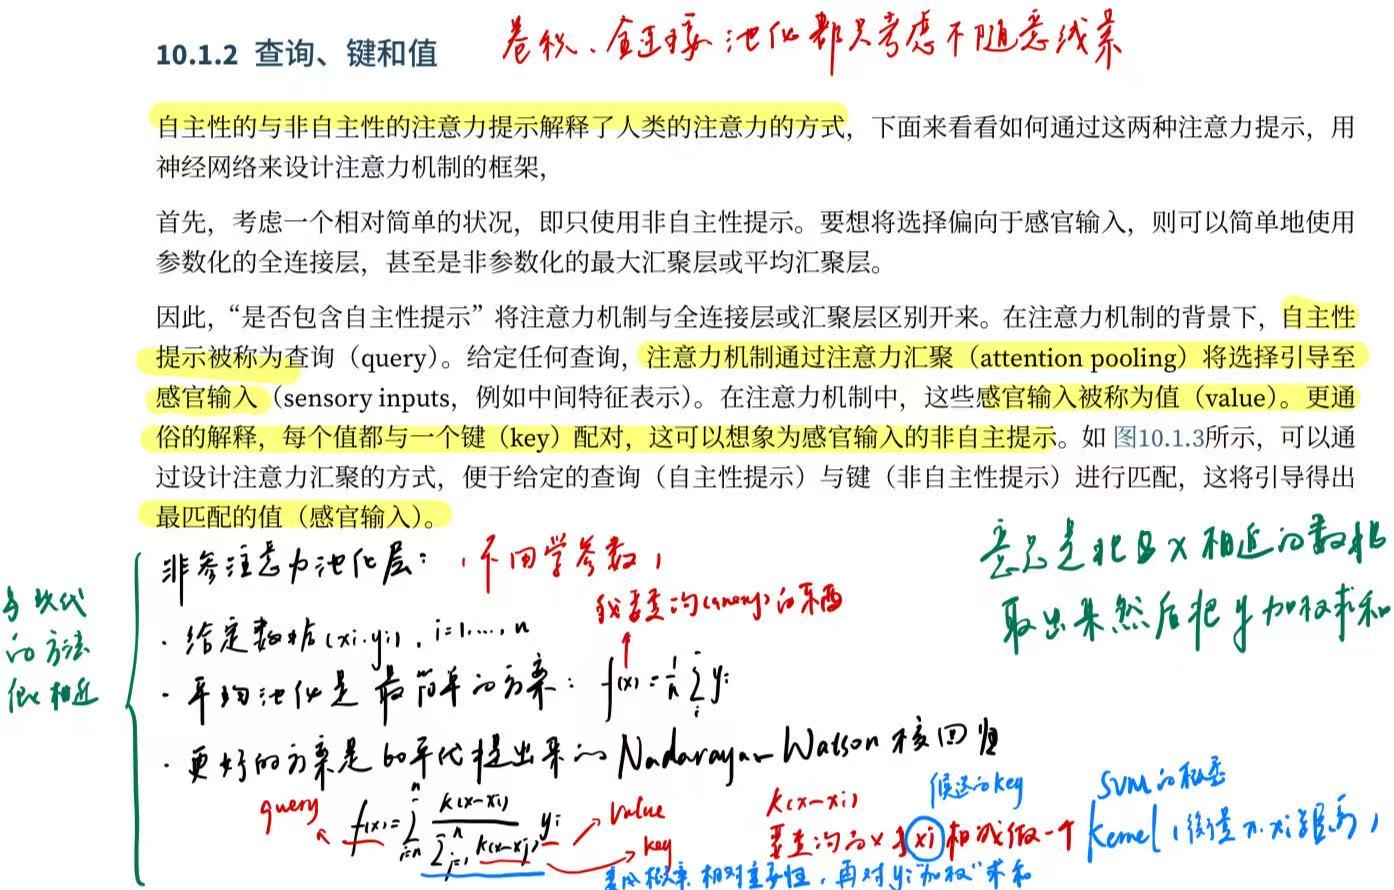 10.1.2 查询、键和值
卷积、全连接、池化都只考虑不随意线索
自主性的与非自主性的注意力提示解释了人类的注意力的方式，下面来看看如何通过这两种注意力提示，用
神经网络来设计注意力机制的框架，
首先，考虑一个相对简单的状况，即只使用非自主性提示。要想将选择偏向于感官输入，则可以简单地使用
参数化的全连接层，甚至是非参数化的最大汇聚层或平均汇聚层。
因此，“是否包含自主性提示”将注意力机制与全连接层或汇聚层区别开来。在注意力机制的背景下，自主性
提示被称为查询（query）。给定任何查询，注意力机制通过注意力汇聚（attention pooling）将选择引导至
感官输入（sensory inputs，例如中间特征表示）。在注意力机制中，这些感官输入被称为值（value）。更通
俗的解释，每个值都与一个键（key）配对，这可以想象为感官输入的非自主提示。如 图10.1.3所示，可以通
过设计注意力汇聚的方式，便于给定的查询（自主性提示）与键（非自主性提示）进行匹配，这将引导得出
最匹配的值（感官输入）。
非参注意力池化层：
（不用学参数）
意思是把与x相近的数据
取出来然后把y加权求和
我要查询(query)的东西
与现代
的方法
很相近
· 给定数据(xi,yi)，i=1,...,n
· 平均池化是最简单的方案：f(x)=1/n Σ_i yi
· 更好的方案是60年代提出来的Nadaraya-Watson核回归
query
f(x)=Σ_{i=1}^n K(x-xi)/Σ_{j=1}^n K(x-xj) yi
value
key
K(x-xi)
候选的key
SVM的概念
要查询的x与xi相减做一个
kernel（衡量x,xi距离）
概率 相对重要性，再对yi“加权”求和